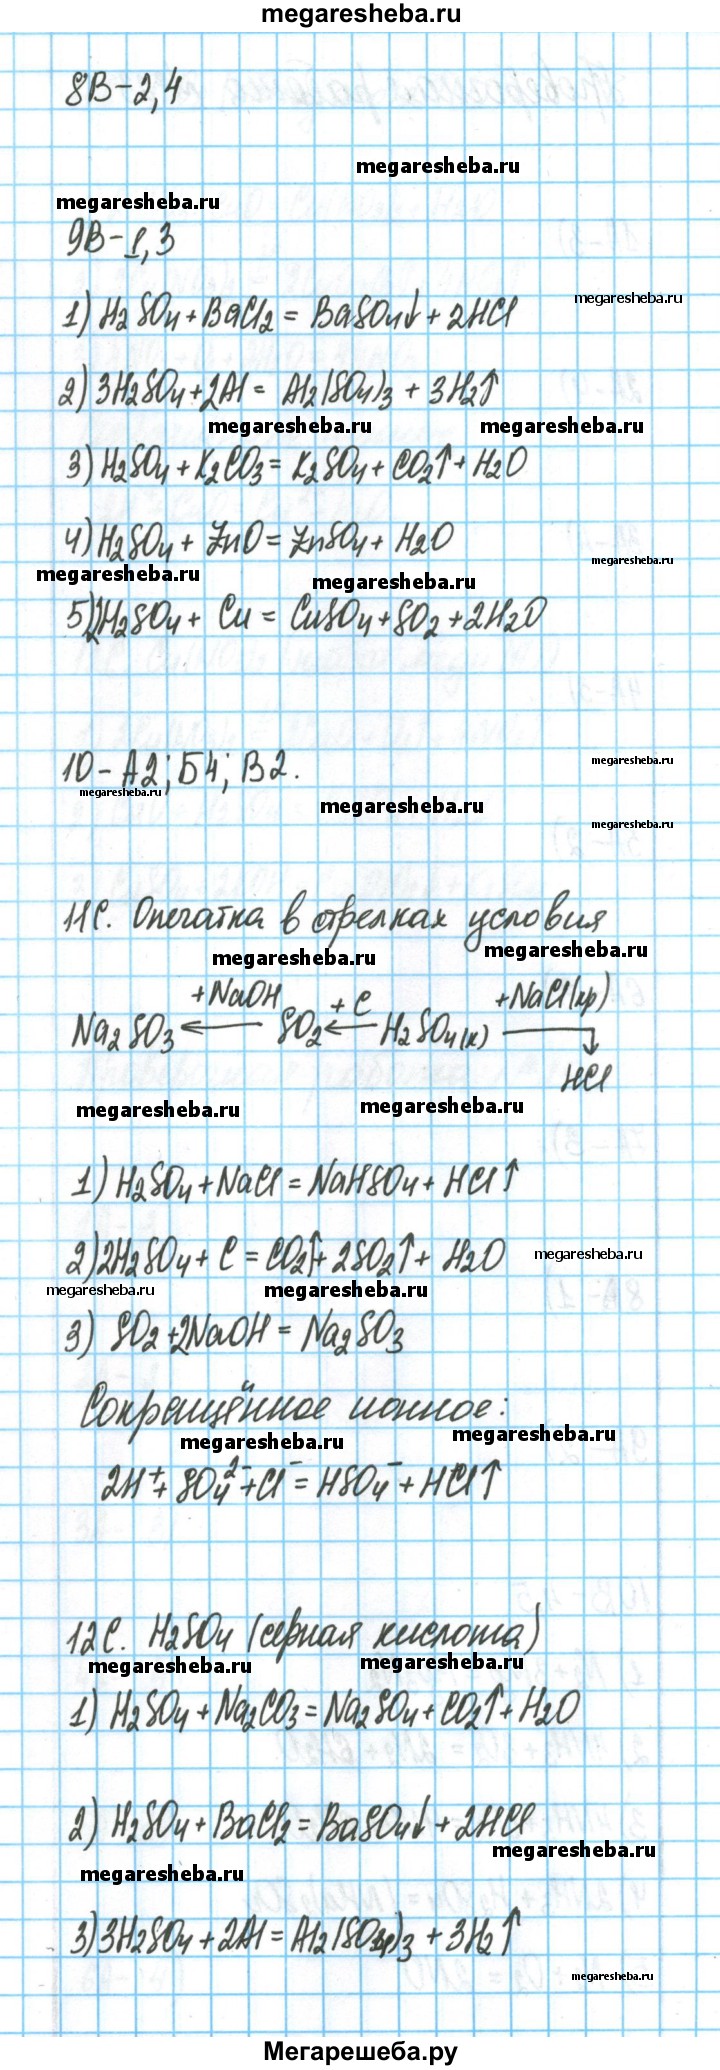 megaresheba.ru
8В-2,4
megaresheba.ru
megaresheba.ru
9В-1,3
megaresheba.ru
1) H₂SO₄+BaCl₂ = BaSO₄↓ + 2HCl
2) 3H₂SO₄+2Al = Al₂(SO₄)₃ + 3H₂↑
megaresheba.ru megaresheba.ru
3) H₂SO₄+K₂CO₃ = K₂SO₄+CO₂↑+H₂O
4) H₂SO₄+ ZnO = ZnSO₄ + H₂O
megaresheba.ru
megaresheba.ru megaresheba.ru
5) 2H₂SO₄ + Cu = CuSO₄+SO₂ +2H₂O
megaresheba.ru
10-А2; Б4; В2.
megaresheba.ru
megaresheba.ru
megaresheba.ru
11С. Опечатка в стрелках условия
megaresheba.ru megaresheba.ru
+NaOH + C +NaCl(кр)
Na₂SO₃ ← SO₂ ← H₂SO₄(к) →
HCl
megaresheba.ru megaresheba.ru
1) H₂SO₄+NaCl = NaHSO₄ + HCl↑
2) 2H₂SO₄ + C = CO₂↑+ 2SO₂↑ + H₂O
megaresheba.ru
megaresheba.ru megaresheba.ru
3) SO₂ +2NaOH = Na₂SO₃
Сокращённое ионное:
megaresheba.ru megaresheba.ru
2H⁺+ SO₄²⁻+Cl⁻ = HSO₄⁻ + HCl↑
12С. H₂SO₄ (серная кислота)
megaresheba.ru megaresheba.ru
1) H₂SO₄ +Na₂CO₃ = Na₂SO₄+CO₂↑+H₂O
2) H₂SO₄+BaCl₂ = BaSO₄↓ +2HCl
megaresheba.ru megaresheba.ru
3) 3H₂SO₄ + 2Al = Al₂(SO₄)₃ + 3H₂↑
megaresheba.ru
Мегарешеба.ру